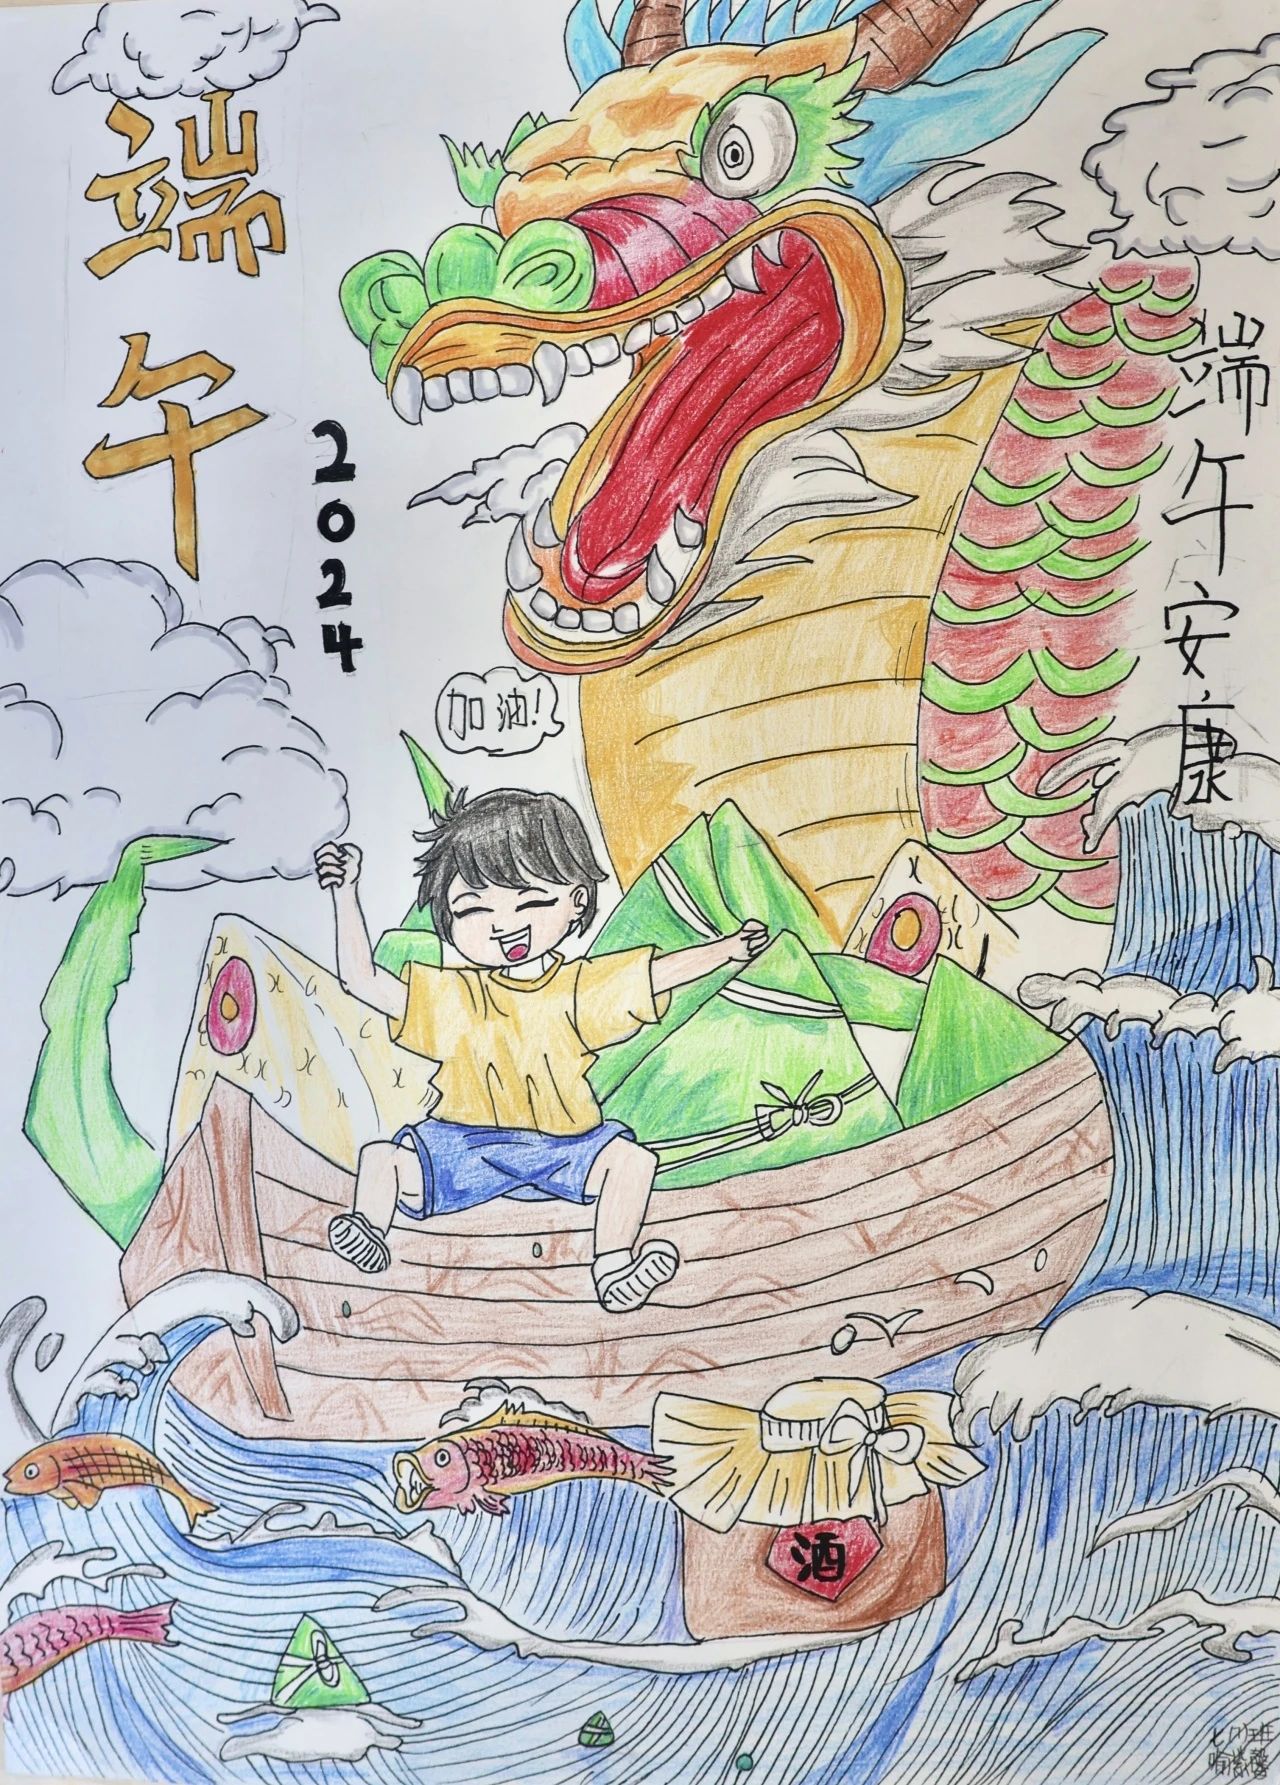 端午
2024
端午安康
加油!
酒